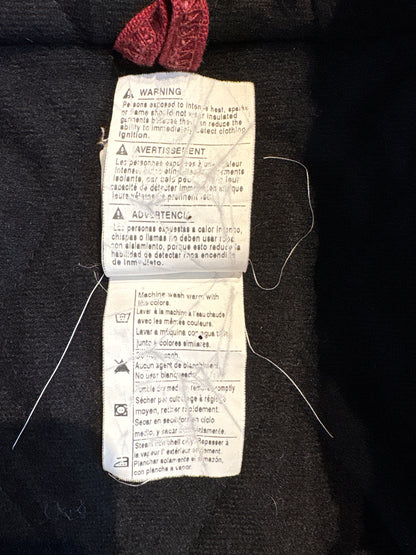 WARNING
Persons exposed to intense heat, sparks
or flame should not wear insulated
garments because they can reduce the
ability to immediately detect clothing
ignition.
AVERTISSEMENT
Les personnes exposées à une chaleur
intense, des
isolants, car cela peut
capacité de détecter immédiatement que
leurs vêtements prennent feu.
ADVERTENCIA
Las personas expuestas a calor intenso,
chispas o llamas no deben usar ropa
con aislamiento, porque esto reduce la
habilidad de detectar ropa encendida
de inmediato.
Machine wash warm with
like colors.
Laver à la machine à l'eau chaude
avec les mêmes couleurs.
Lavar a máquina con agua tibia
junto a colores similares.
Do not bleach.
Aucun agent de blanchiment.
No usar blanqueador.
Tumble dry med. remove promptly
Sécher par culbutage à réglage
moyen, retirer rapidement.
Secar en secarropa en ciclo
medio, y sacar inmediatamente.
Steam iron shell only. Repasser à
la vapeur l' extérieur seulement.
Planchar solamente el armazón,
con plancha a vapor.